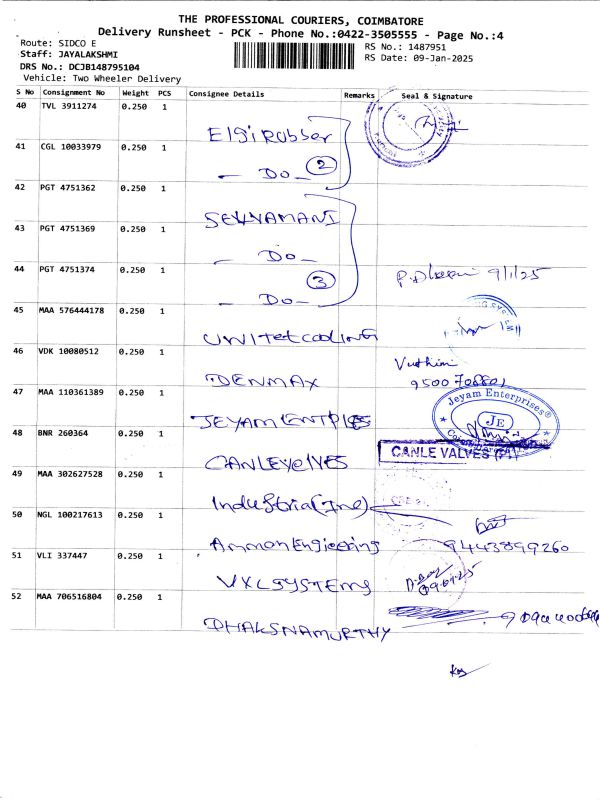 THE PROFESSIONAL COURIERS, COIMBATORE
Delivery Runsheet - PCK - Phone No.:0422-3505555 - Page No.:4
Route: SIDCO E
RS No.: 1487951
Staff: JAYALAKSHMI
RS Date: 09-Jan-2025
DRS No.: DCJB148795104
Vehicle: Two Wheeler Delivery
S No Consignment No Weight PCS Consignee Details Remarks Seal & Signature
40 TVL 3911274 0.250 1
Elgi Rubber
41 CGL 10033979 0.250 1
— Do — 2
42 PGT 4751362 0.250 1
SELVAMANI
43 PGT 4751369 0.250 1
— Do —
44 PGT 4751374 0.250 1
3 9/1/25
— Do —
45 MAA 576444178 0.250 1
UNITEt COOLING
46 VDK 10080512 0.250 1
DENMAX
47 MAA 110361389 0.250 1
Jeyam Enterprises
JE
JEYAM
48 BNR 260364 0.250 1
CANLE VALVES (P)
49 MAA 302627528 0.250 1
Industria(Ine)
50 NGL 100217613 0.250 1
Ammon Engieering 9443899260
51 VLI 337447 0.250 1
VXL SYSTEMS 09.01.25
52 MAA 706516804 0.250 1
DHAKSNAMURTHY